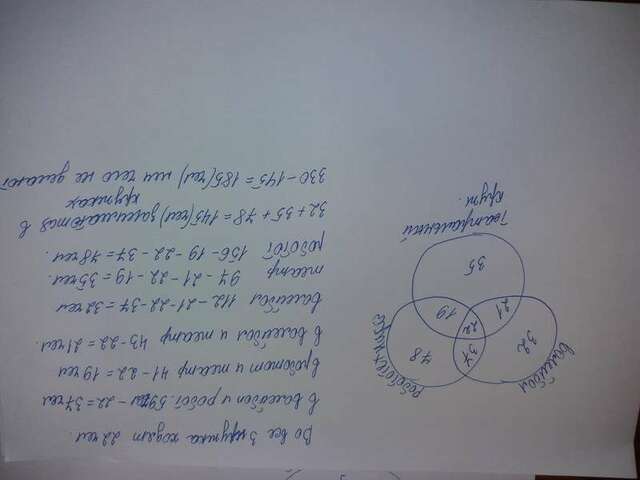 Во все 3 кружка ходят 22 чел.
в валейбол и робот. 59чел - 22 = 37чел
в роботот и театр 41-22 = 19чел
в валейбол и театр 43-22 = 21чел.
валейбол 112-21-22-37 = 32чел
театр 97-21-22-19 = 35чел.
роботот 156-19-22-37 = 78чел.
32+35+78 = 145(чел) занимаются в
кружках
330-145 = 185(чел) ни чего не делают
Робототехника
78
37
22
19
валейбол
32
21
35
театральный
круж.